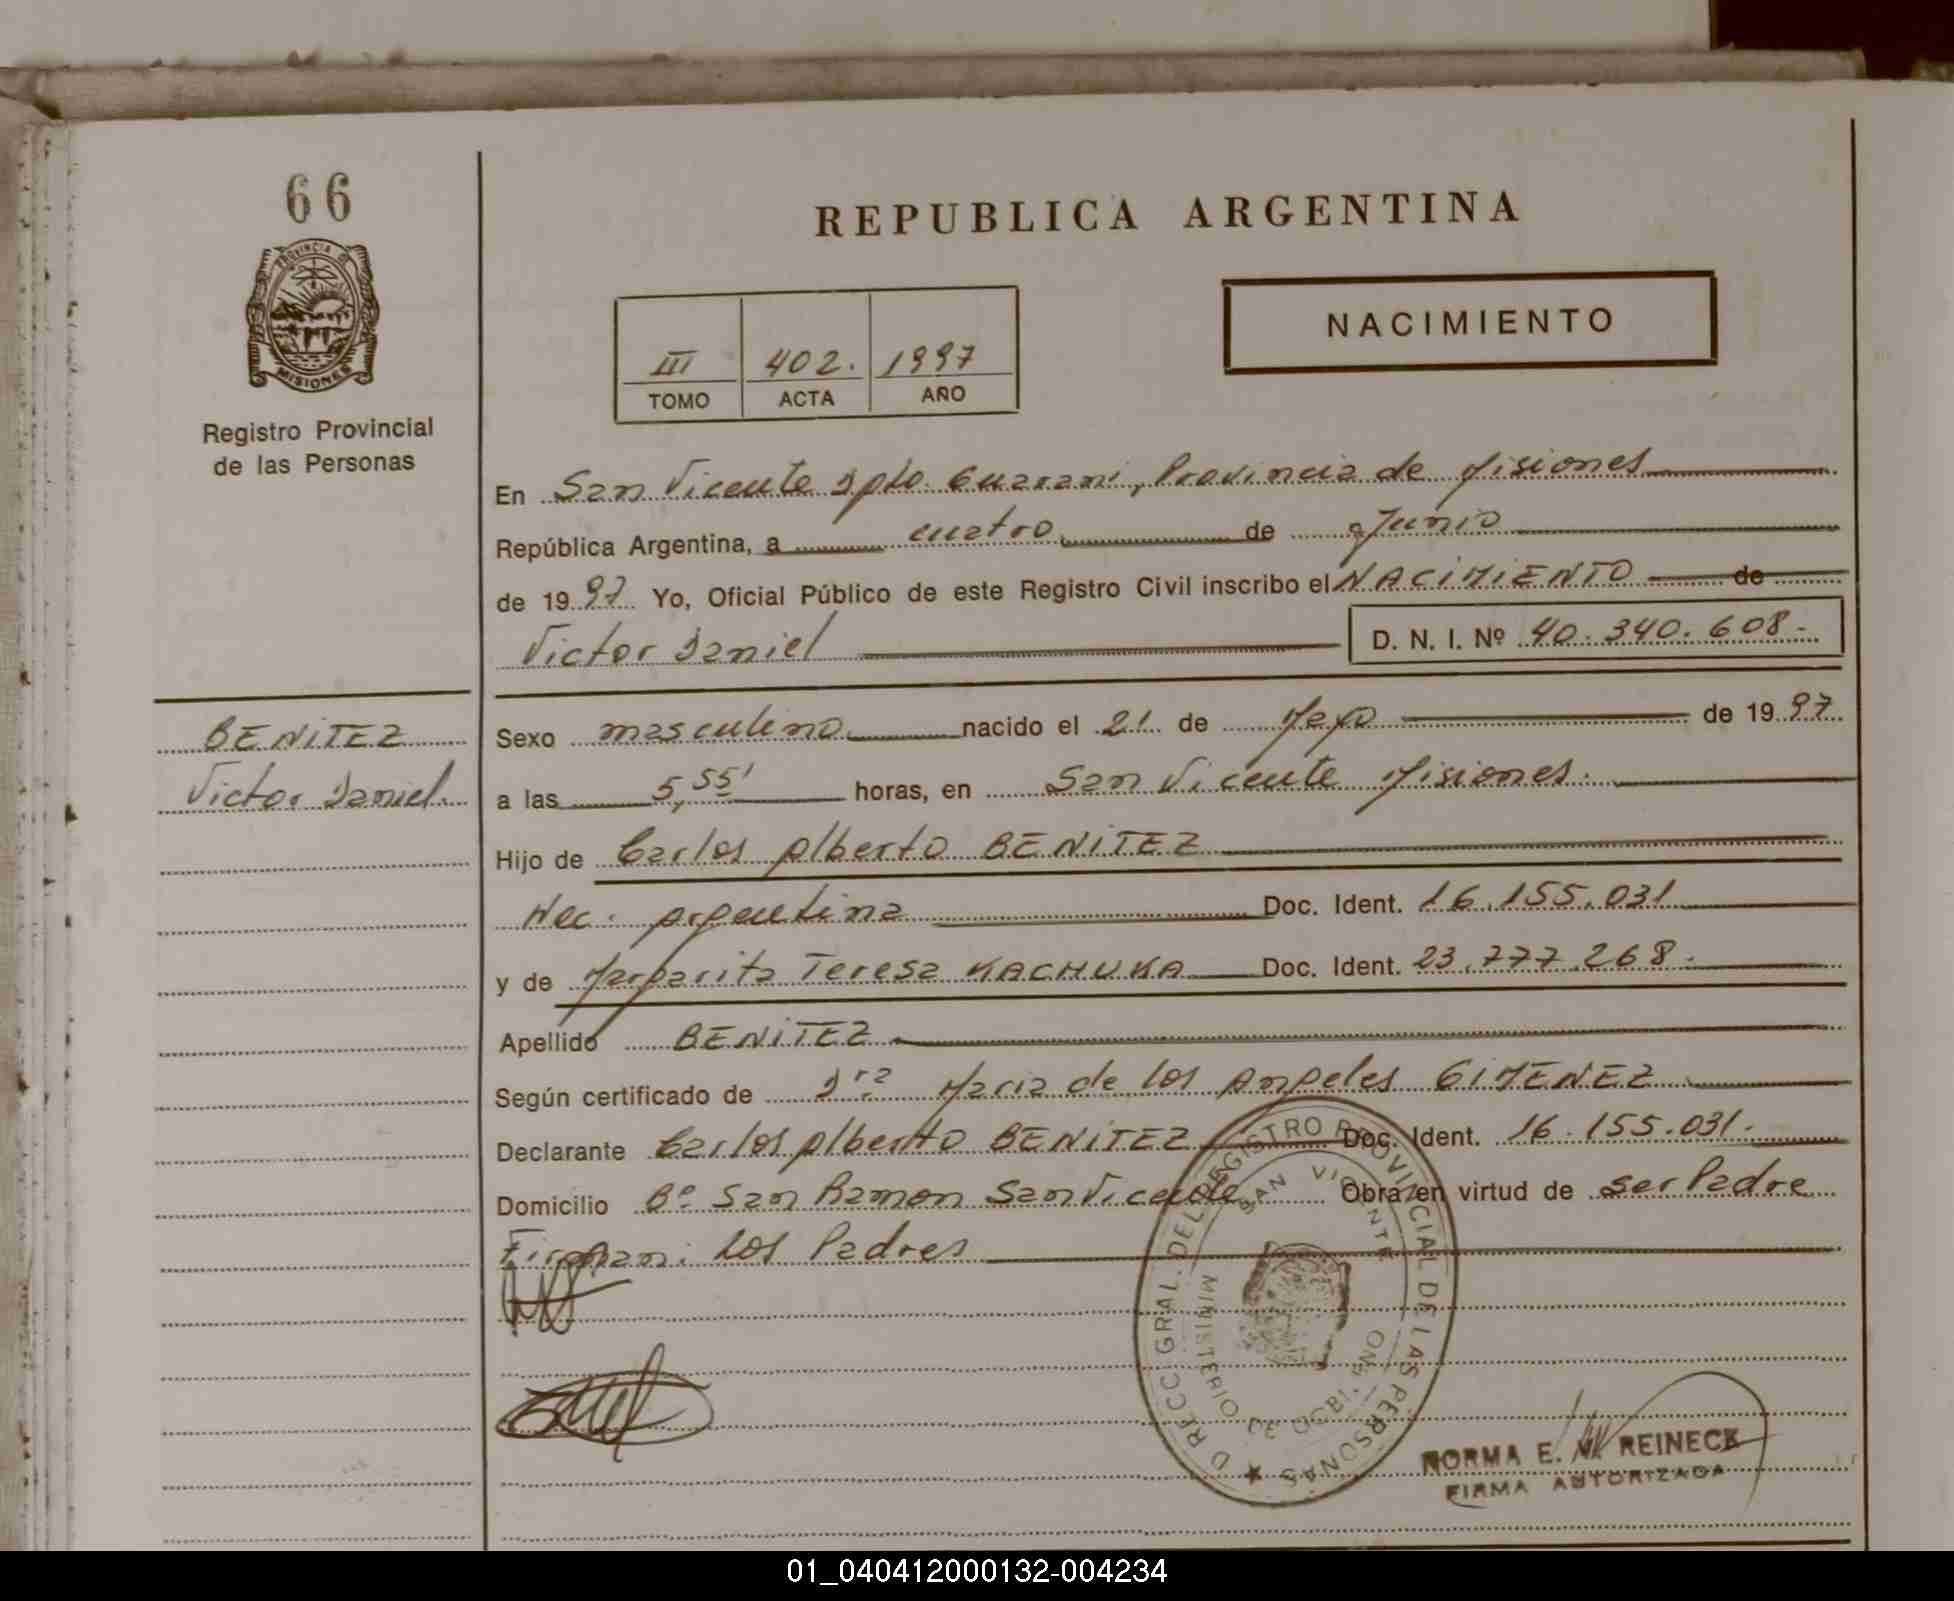 66
PROVINCIA DE
MISIONES
Registro Provincial
de las Personas
REPUBLICA ARGENTINA
NACIMIENTO
III 402. 1997
TOMO ACTA AÑO
En San Vicente Dpto. Guarani, Provincia de Misiones
República Argentina, a cuatro de Junio
de 1997 Yo, Oficial Público de este Registro Civil inscribo el NACIMIENTO de
Victor Daniel D. N. I. Nº 40.340.608.-
BENITEZ
Victor Daniel.
Sexo masculino nacido el 21 de Mayo de 1997
a las 5,55' horas, en San Vicente Misiones.
Hijo de Carlos Alberto BENITEZ
Nac. Argentina Doc. Ident. 16.155.031
y de Margarita Teresa KACHUKA Doc. Ident. 23.777.268.-
Apellido BENITEZ
Según certificado de Dra Maria de los Angeles GIMENEZ
Declarante Carlos Alberto BENITEZ Doc. Ident. 16.155.031.
Domicilio Bº San Ramon San Vicente Obra en virtud de ser Padre
Firman: los Padres
DIRECC. GRAL. DEL REGISTRO PROVINCIAL DE LAS PERSONAS
SAN VICENTE
MINISTERIO DE GOBIERNO
NORMA E. M. REINECK
FIRMA AUTORIZADA
01_040412000132-004234